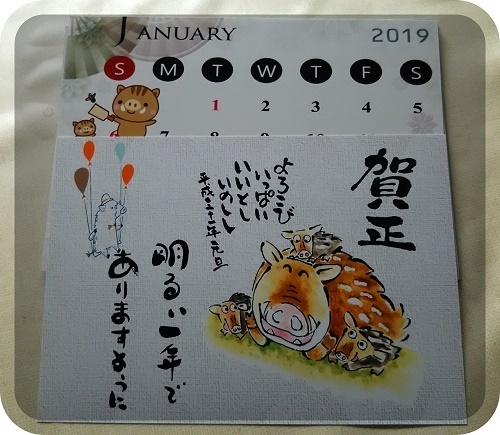 JANUARY 2019
S M T W T F S
1 2 3 4 5
6 7 8 9 10
賀正
よろこび
いっぱい
いいとし
いのしし
平成三十一年 元旦
明るい一年で
ありますように